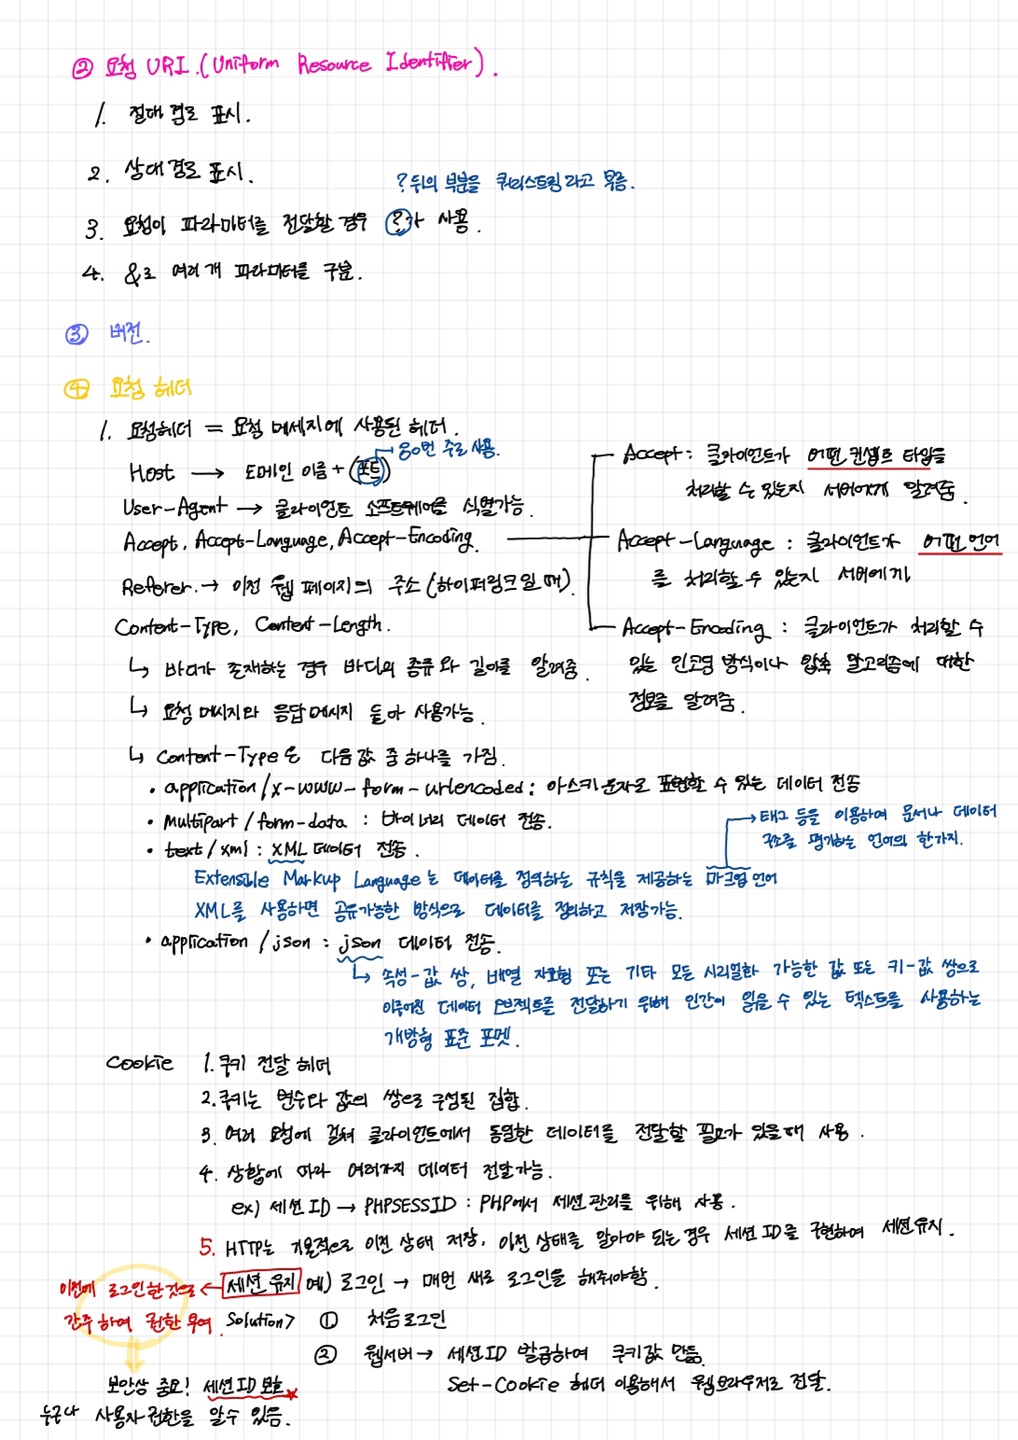 ② 요청 URI. (Uniform Resource Identifier).
1. 절대 경로 표시.
2. 상대경로 표시.
?뒤의 부분을 쿼리스트링라고 부름.
3. 요청이 파라미터를 전달할 경우 ?가 사용.
4. &로 여러개 파라미터를 구분.
③ 버전.
④ 요청 헤더
1. 요청헤더 = 요청 메세지에 사용된 헤더.
Host → 도메인 이름 + (포트)
80번 주로 사용.
User-Agent → 클라이언트 소프트웨어를 식별가능.
Accept, Accept-Language, Accept-Encoding.
Accept : 클라이언트가 어떤 컨텐츠 타입을
처리할 수 있는지 서버에게 알려줌.
Accept-Language : 클라이언트가 어떤 언어
를 처리할 수 있는지 서버에게
Accept-Encoding : 클라이언트가 처리할 수
있는 인코딩 방식이나 압축 알고리즘에 대한
정보를 알려줌.
Referer. → 이전 웹 페이지의 주소 (하이퍼링크일 때)
Content-Type, Content-Length.
↳ 바디가 존재하는 경우 바디의 종류와 길이를 알려줌.
↳ 요청 메시지와 응답메시지 둘다 사용가능.
↳ Content-Type은 다음 값 중 하나를 가짐.
• application/x-www-form-urlencoded: 아스키문자로 표현할 수 있는 데이터 전송
• Multipart/form-data : 바이너리 데이터 전송.
• text/xml : XML 데이터 전송.
→ 태그 등을 이용하여 문서나 데이터
구조를 명기하는 언어의 한가지.
Extensible Markup Language는 데이터를 정의하는 규칙을 제공하는 마크업 언어
XML를 사용하면 공유가능한 방식으로 데이터를 정의하고 저장가능.
• application/json : json 데이터 전송.
↳ 속성-값 쌍, 배열 자료형 또는 기타 모든 시리얼화 가능한 값 또는 키-값 쌍으로
이루어진 데이터 오브젝트를 전달하기 위해 인간이 읽을 수 있는 텍스트를 사용하는
개방형 표준 포멧.
Cookie 1. 쿠키 전달 헤더
2. 쿠키는 변수와 값의 쌍으로 구성된 집합.
3. 여러 요청에 걸쳐 클라이언트에서 동일한 데이터를 전달할 필요가 있을때 사용.
4. 상황에 따라 여러가지 데이터 전달가능.
ex) 세션 ID → PHPSESSID : PHP에서 세션관리를 위해 사용.
5. HTTP는 기본적으로 이전 상태 저장, 이전 상태를 알아야 되는 경우 세션 ID를 구현하여 세션유지.
이전에 로그인한것으로 ← 세션 유지 예) 로그인 → 매번 새로 로그인을 해줘야함.
간주하여 권한 부여. Solution> ① 처음로그인
② 웹서버 → 세션ID 발급하여 쿠키값 만듦.
보안상 중요! 세션ID 모출 Set-Cookie 헤더 이용해서 웹브라우저로 전달.
누구나 사용자권한을 알수 있음.